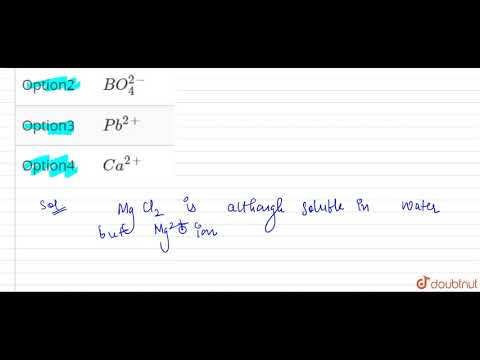 Option2 BO₄²⁻
Option3 Pb²⁺
Option4 Ca²⁺
Sol MgCl₂ is although soluble in water
but Mg²⁺ ion
doubtnut